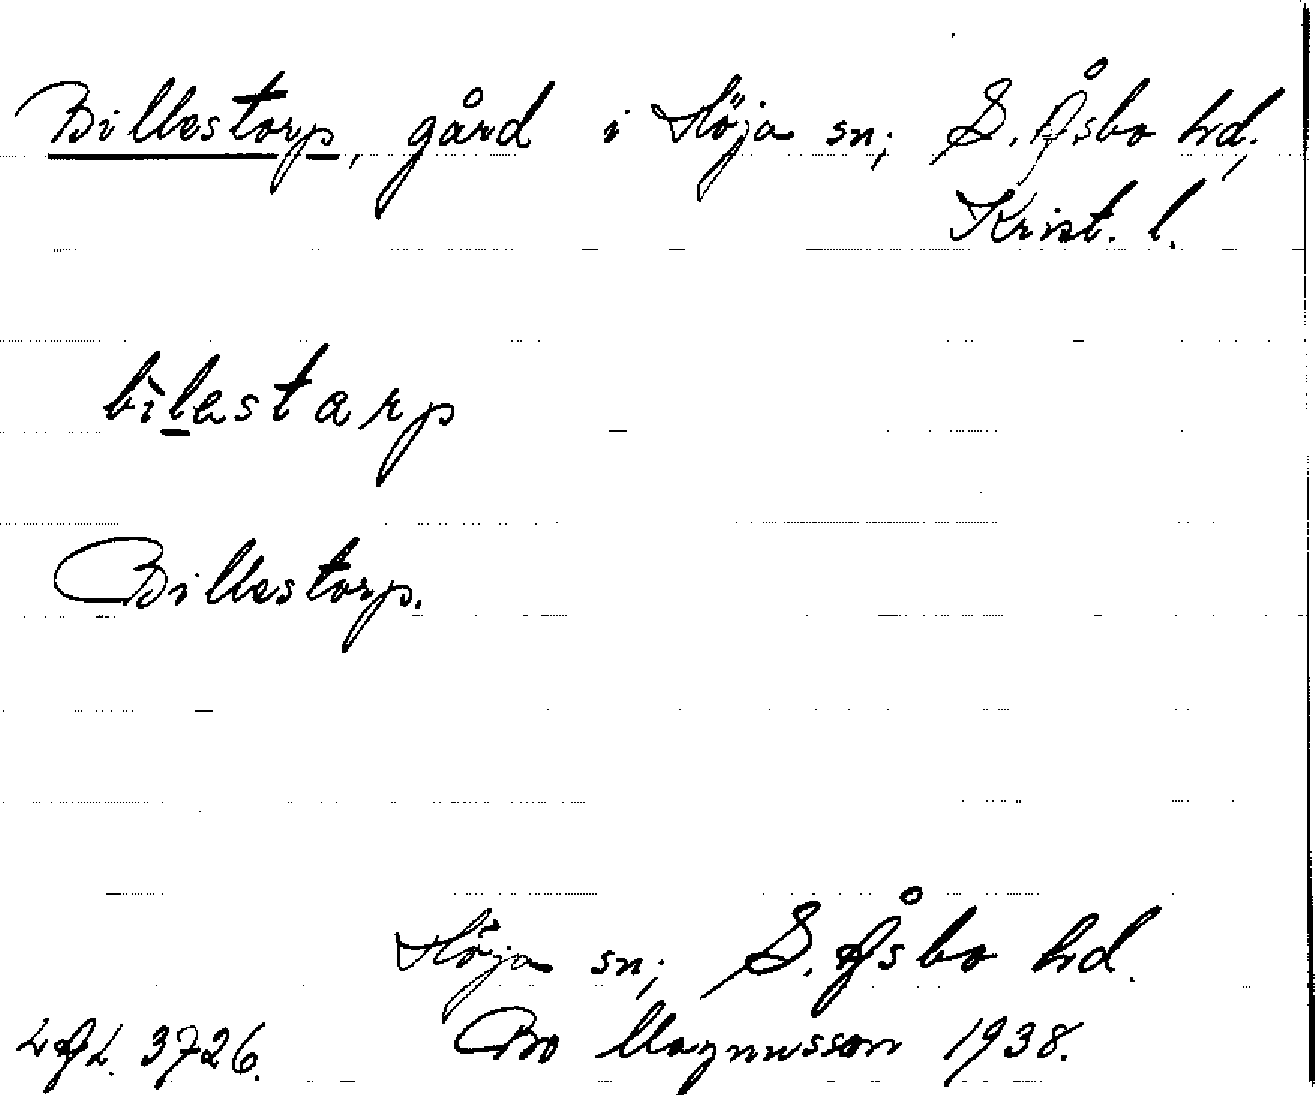 Billestorp, gård i Höja sn; S. Åsbo hd,
Krist. l.
bìlestarp
Billestorp.
Höja sn; S. Åsbo hd.
LAL. 3726. Bo Magnusson 1938.